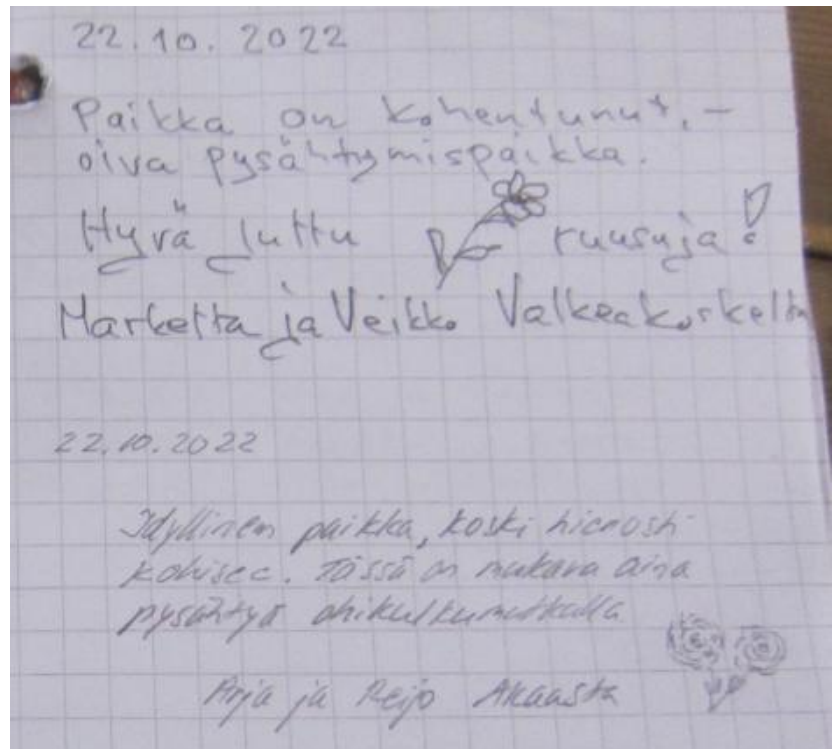 22.10.2022
Paikka on kohentunut, –
oiva pysähtymispaikka.
Hyvä juttu ruusuja!
Marketta ja Veikko Valkeakoskelta
22.10.2022
Idyllinen paikka, koski hienosti
kohisee. Tässä on mukava aina
pysähtyä ohikulkumatkalla
Arja ja Reijo Akaasta